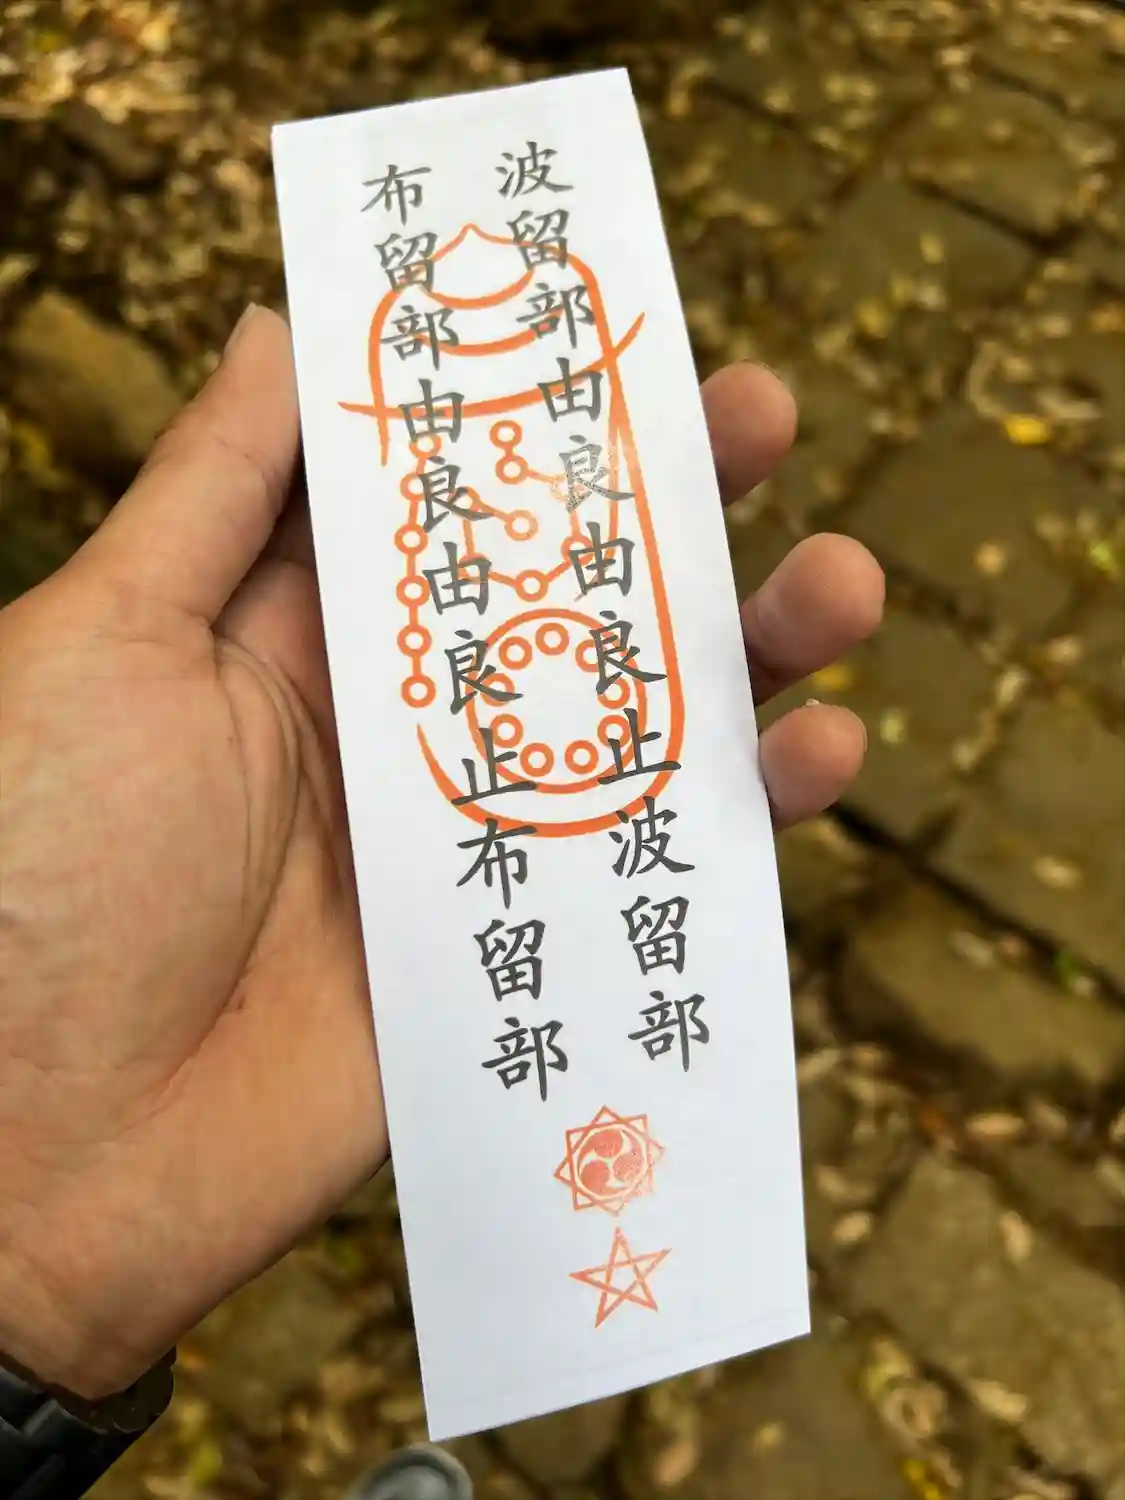 波留部由良由良止波留部
布留部由良由良止布留部